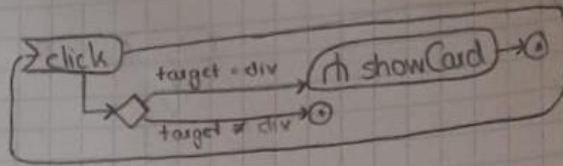 click
target = div
showCard
target ≠ div